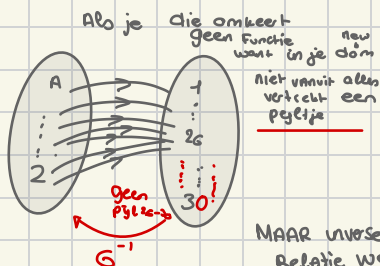 Als je die omkeert
geen Functie new
want in je dom
niet vanuit alles
vertrekt een
pijltje
A
1
26
2
30
geen
pijl 26-30
G⁻¹
MAAR inverse
Relatie